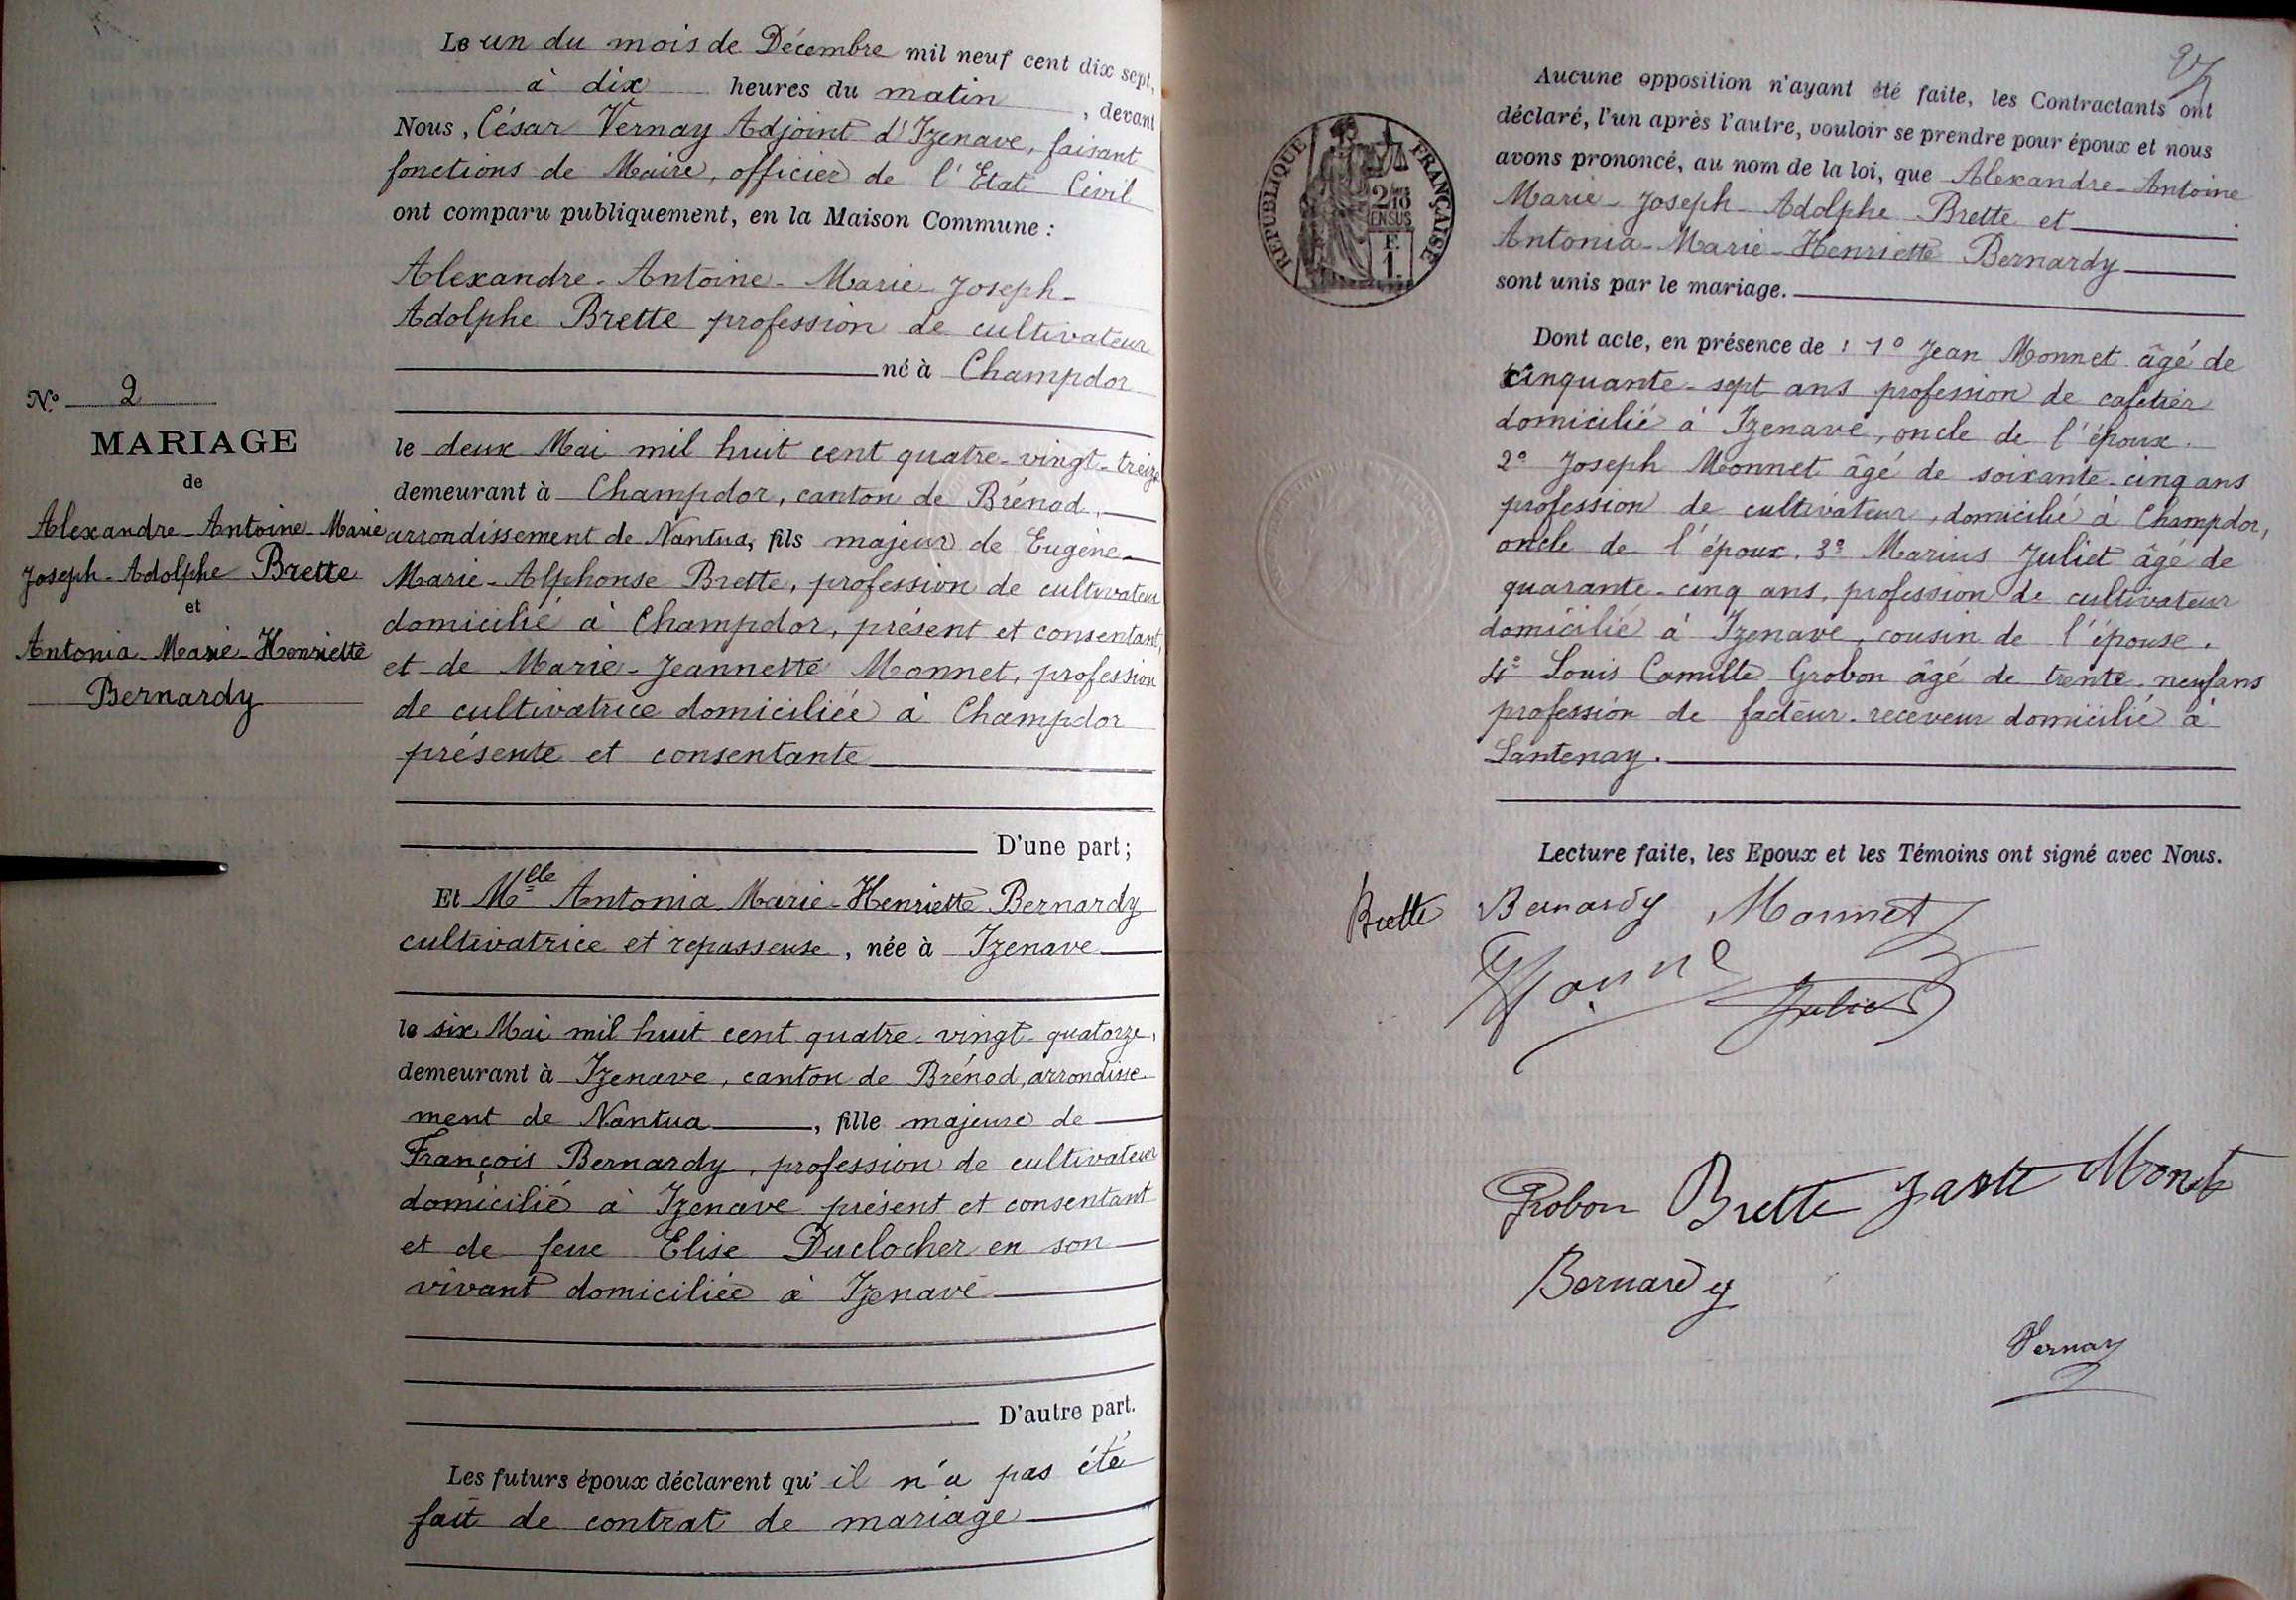 Nº 2
MARIAGE
de
Alexandre-Antoine-Marie
Joseph-Adolphe Brette
et
Antonia-Marie-Henriette
Bernardy
Le un du mois de Décembre mil neuf cent dix sept,
à dix heures du matin, devant
Nous, César Vernay Adjoint d'Izenave, faisant
fonctions de Maire, officier de l'Etat Civil
ont comparu publiquement, en la Maison Commune :
Alexandre-Antoine-Marie-Joseph-
Adolphe Brette profession de cultivateur
né à Champdor
le deux Mai mil huit cent quatre-vingt-treize
demeurant à Champdor, canton de Brénod,
arrondissement de Nantua, fils majeur de Eugène
Marie-Alphonse Brette, profession de cultivateur
domicilié à Champdor, présent et consentant,
et de Marie-Jeannette Monnet, profession
de cultivatrice domiciliée à Champdor
présente et consentante
D'une part ;
Et Mlle Antonia Marie-Henriette Bernardy
cultivatrice et repasseuse, née à Izenave
le six Mai mil huit cent quatre-vingt-quatorze,
demeurant à Izenave, canton de Brénod, arrondisse-
ment de Nantua, fille majeure de
François Bernardy, profession de cultivateur
domicilié à Izenave présent et consentant
et de feue Elise Duclocher en son
vivant domiciliée à Izenave
D'autre part.
Les futurs époux déclarent qu'il n'a pas été
fait de contrat de mariage
RÉPUBLIQUE FRANÇAISE
2/10
EN SUS
F.
1.
Aucune opposition n'ayant été faite, les Contractants ont
déclaré, l'un après l'autre, vouloir se prendre pour époux et nous
avons prononcé, au nom de la loi, que Alexandre-Antoine
Marie-Joseph-Adolphe Brette et
Antonia-Marie-Henriette Bernardy
sont unis par le mariage.
Dont acte, en présence de : 1º Jean Monnet âgé de
cinquante-sept ans profession de cafetier
domicilié à Izenave, oncle de l'époux.
2º Joseph Monnet âgé de soixante-cinq ans
profession de cultivateur, domicilié à Champdor,
oncle de l'époux. 3º Marius Juliet âgé de
quarante-cinq ans, profession de cultivateur
domicilié à Izenave, cousin de l'épouse.
4º Louis Camille Grobon âgé de trente-neuf ans
profession de facteur-receveur domicilié à
Santenay.
Lecture faite, les Epoux et les Témoins ont signé avec Nous.
Brette Bernardy Monnet
Juliet
Grobon Brette
Bernardy
Vernay